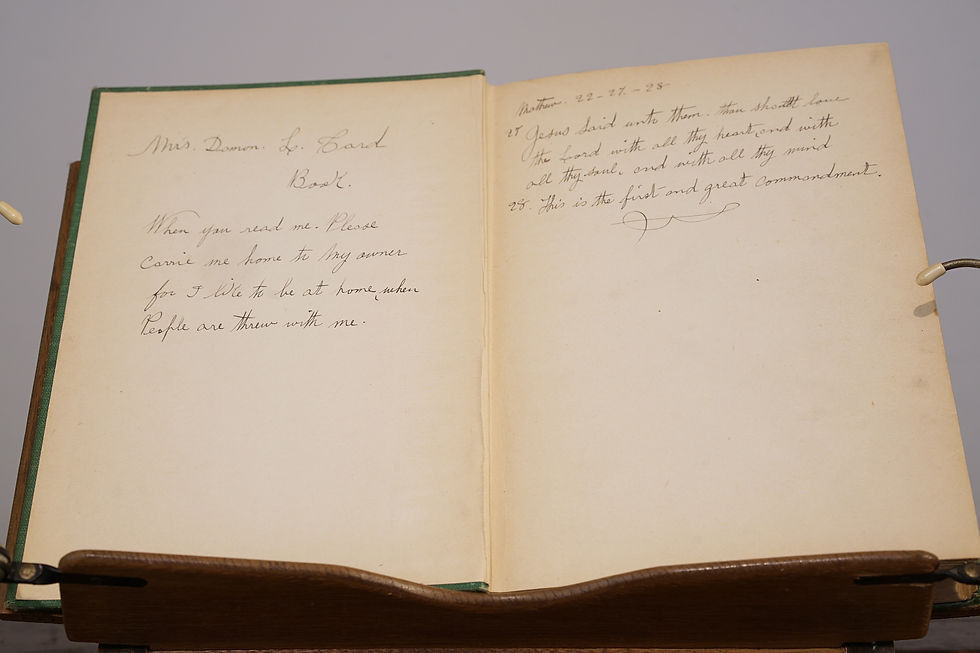 Mrs. Damon. L. Card
Book.
When you read me. Please
Carrie me home to my owner
for I like to be at home, when
People are threw with me.
Mathew. 22-27-28
27 Jesus said unto them. thou shoudt love
the Lord with all thy heart, and with
all thy soul, and with all thy mind
28. This is the first and great commandment.